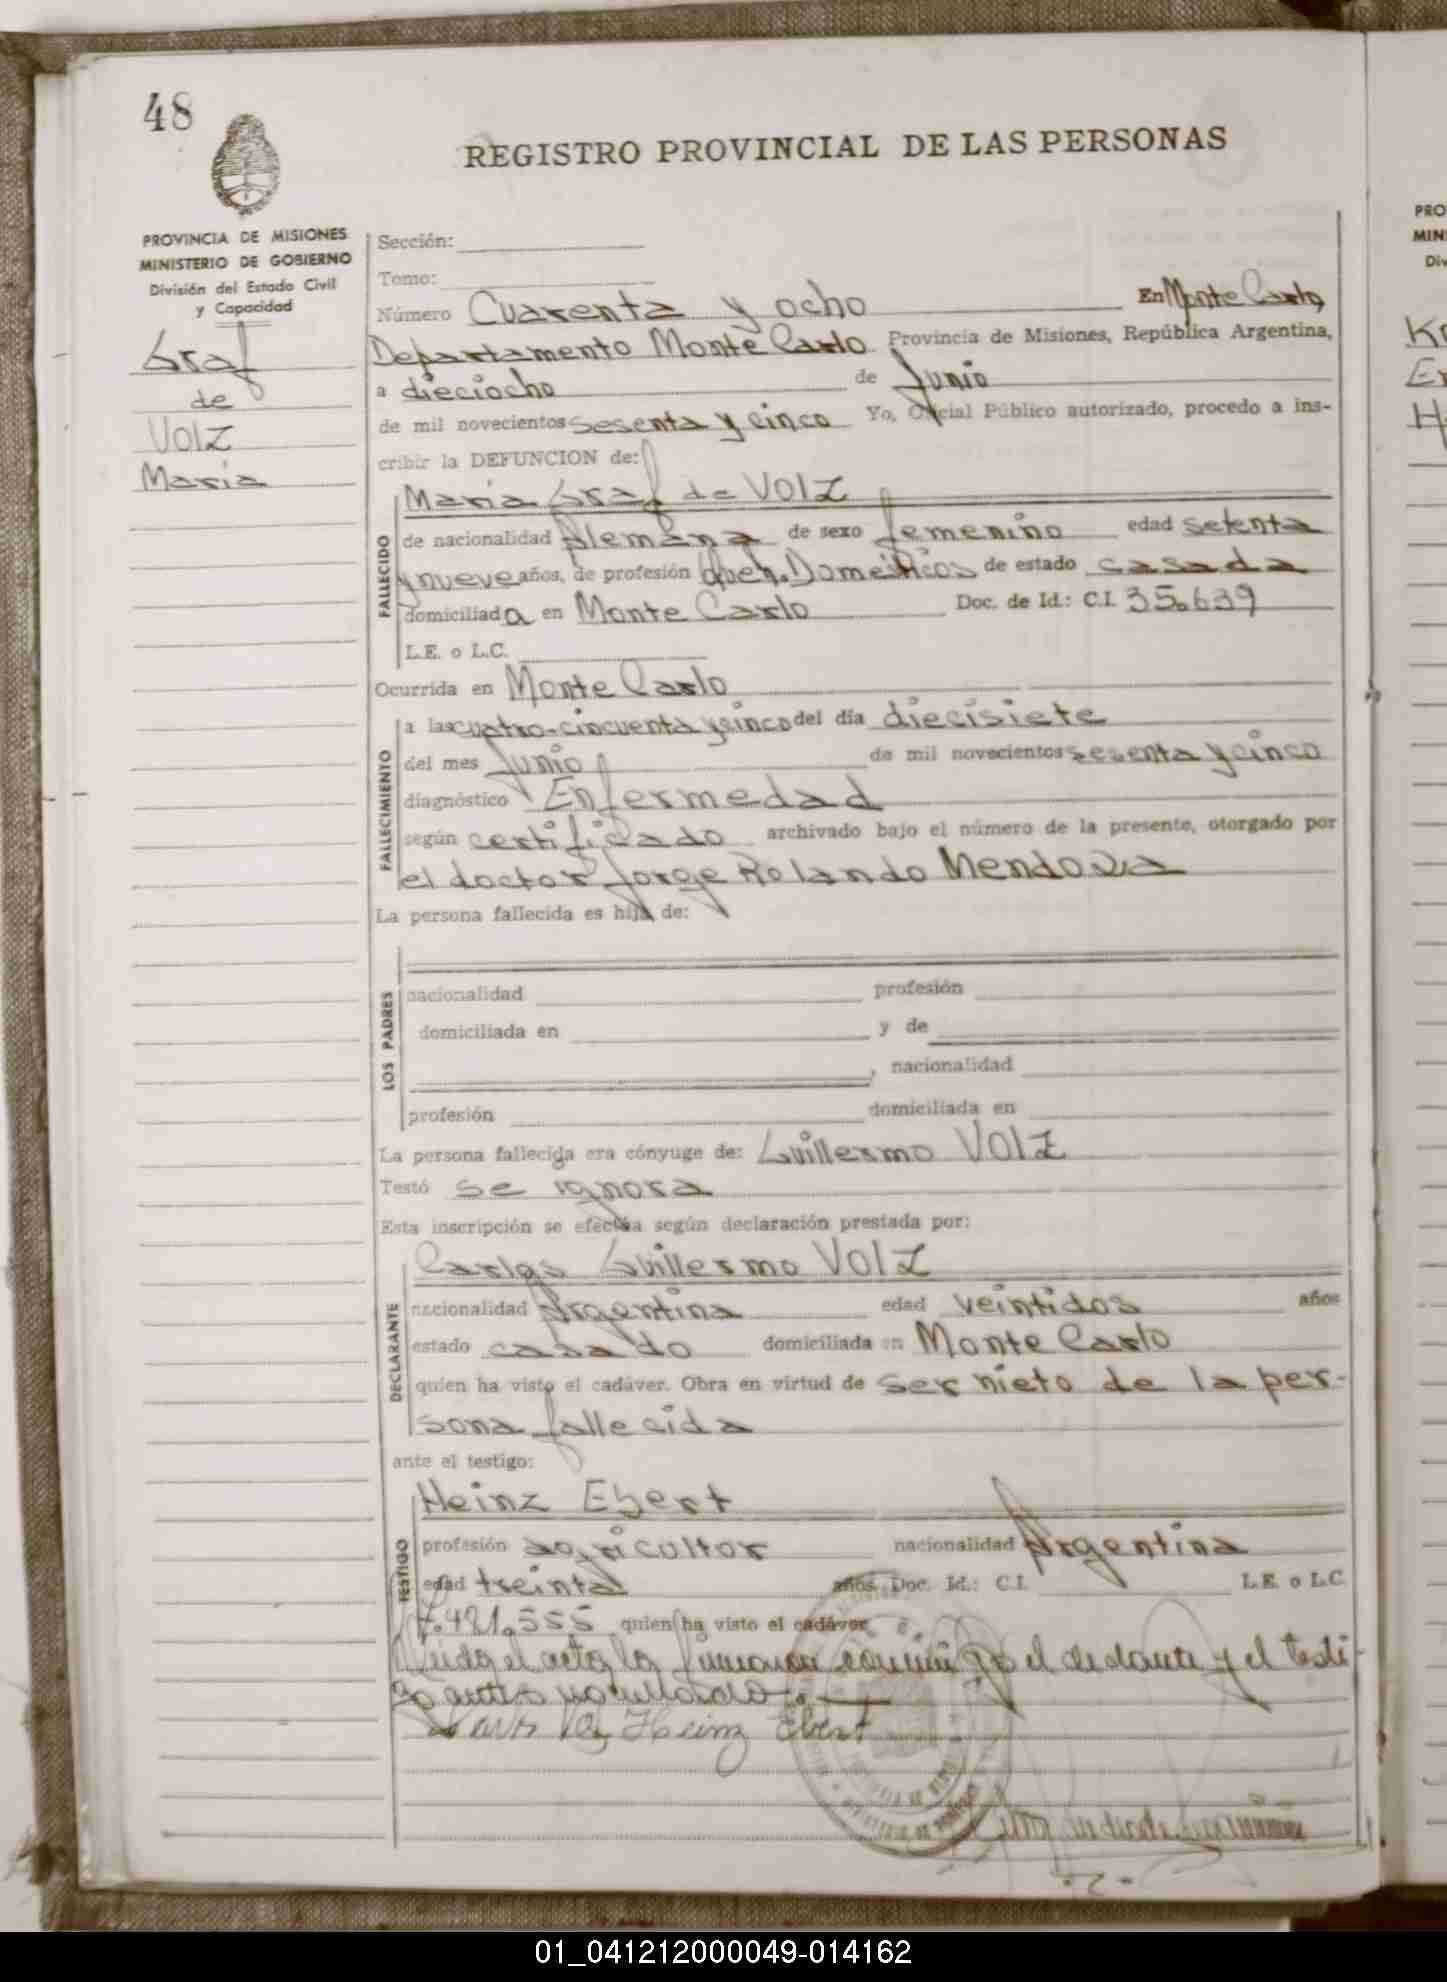 48
REGISTRO PROVINCIAL DE LAS PERSONAS
PROVINCIA DE MISIONES
MINISTERIO DE GOBIERNO
División del Estado Civil
y Capacidad
Graf
de
Volz
Maria
Sección:
Tomo:
Número Cuarenta y ocho En Monte Carlo,
Departamento Monte Carlo Provincia de Misiones, República Argentina,
a dieciocho de Junio
de mil novecientos sesenta y cinco Yo, Oficial Público autorizado, procedo a ins-
cribir la DEFUNCION de:
FALLECIDO
Maria Graf de Volz
de nacionalidad Alemana de sexo femenino edad setenta
y nueve años, de profesión Queh. Domesticos de estado casada
domiciliada en Monte Carlo Doc. de Id.: C.I. 35.639
L.E. o L.C.
Ocurrida en Monte Carlo
FALLECIMIENTO
a las cuatro-cincuenta y cinco del día diecisiete
del mes Junio de mil novecientos sesenta y cinco
diagnóstico Enfermedad
según certificado archivado bajo el número de la presente, otorgado por
el doctor Jorge Rolando Mendoza
La persona fallecida es hija de:
LOS PADRES
nacionalidad profesión
domiciliada en y de
, nacionalidad
profesión domiciliada en
La persona fallecida era cónyuge de: Guillermo Volz
Testó se ignora
Esta inscripción se efectúa según declaración prestada por:
DECLARANTE
Carlos Guillermo Volz
nacionalidad Argentina edad veintidos años
estado casado domiciliada en Monte Carlo
quien ha visto el cadáver. Obra en virtud de ser nieto de la per-
sona fallecida
ante el testigo:
TESTIGO
Heinz Ebert
profesión agricultor nacionalidad Argentina
edad treinta años Doc. Id.: C.I. L.E. o L.C.
7.481.555 quien ha visto el cadáver.
Leida el acta la firmaron conmigo el declarante y el testi-
go antes nombrado.
Heinz Ebert
PRO
MIN
Div
Kr
Er
H
01_041212000049-014162